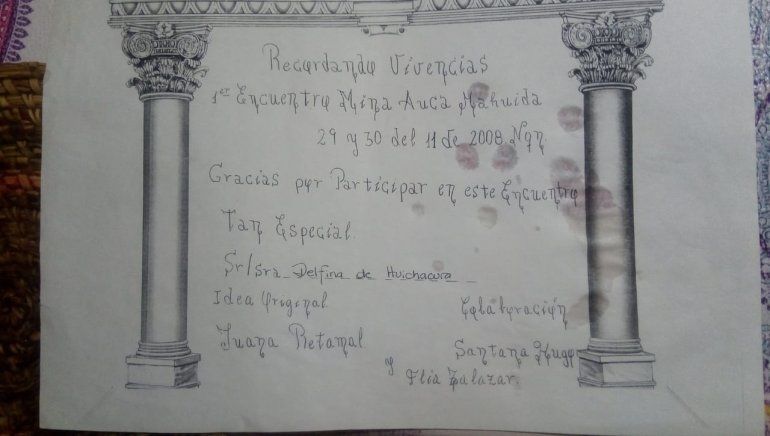 Recordando Vivencias
1er Encuentro Mina Auca Mahuida
29 y 30 del 11 de 2008. Nqn.
Gracias por Participar en este Encuentro
Tan Especial.
Sr/Sra Delfina de Huichacura
Idea Original Colaboración
Juana Retamal Santana Hugo
y Flia Zalazar.